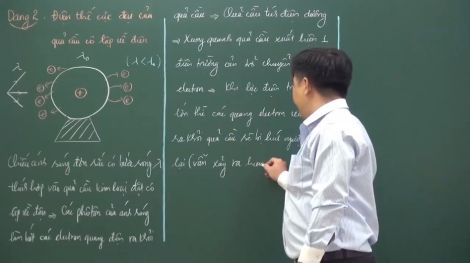 Dạng 2. Điện thế cực đại của
quả cầu cô lập về điện
λ
λ₀
(λ < λ₀)
e
e
e
e
e
e
+
Chiếu ánh sáng đơn sắc có bước sóng λ
thích hợp vào quả cầu kim loại đặt cô
lập về điện ⇒ Các phôtôn của ánh sáng
làm bứt các electron quang điện ra khỏi
quả cầu ⇒ Quả cầu tích điện dương
⇒ Xung quanh quả cầu xuất hiện 1
điện trường cản trở chuyển
electron ⇒ Khi lúc điện tr
lớn thì các quang electron
ra khỏi quả cầu sẽ bị hút ngư
lại (vẫn xảy ra